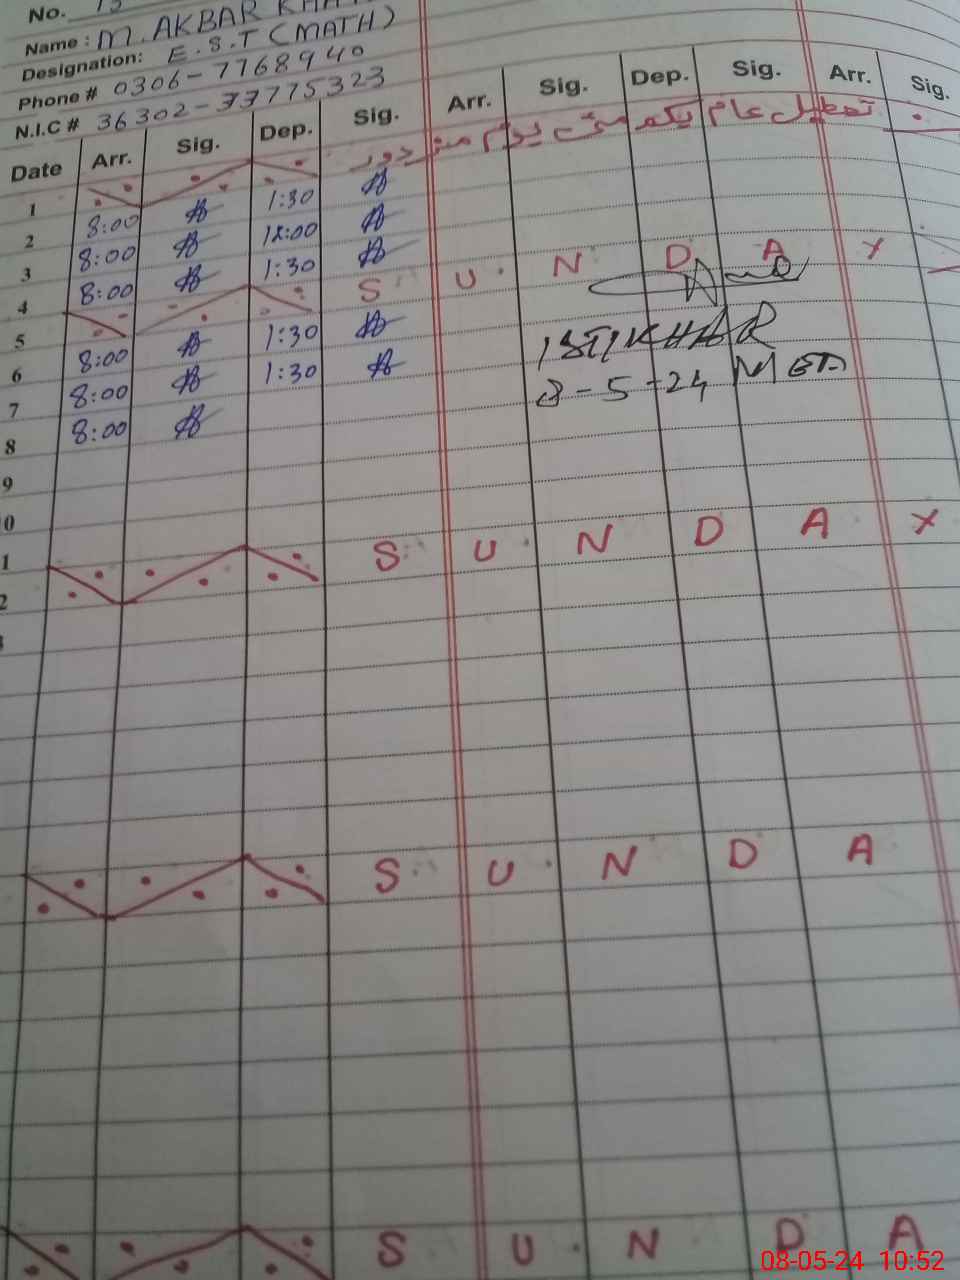 No. 13
Name : M. AKBAR KHAN
Designation: E.S.T (MATH)
Phone # 0306-7768940
N.I.C # 36302-37775323
Date Arr. Sig. Dep. Sig. Arr. Sig. Dep. Sig. Arr. Sig.
1 تعطیل عام یکم مئی یوم مزدور
2 8:00 1:30
3 8:00 12:00
4 8:00 1:30
5 S U N D A Y
6 8:00 1:30
7 8:00 1:30
8 8:00
8-5-24
9
0
1
2 S U N D A Y
S U N D A
S U N D A
08-05-24 10:52